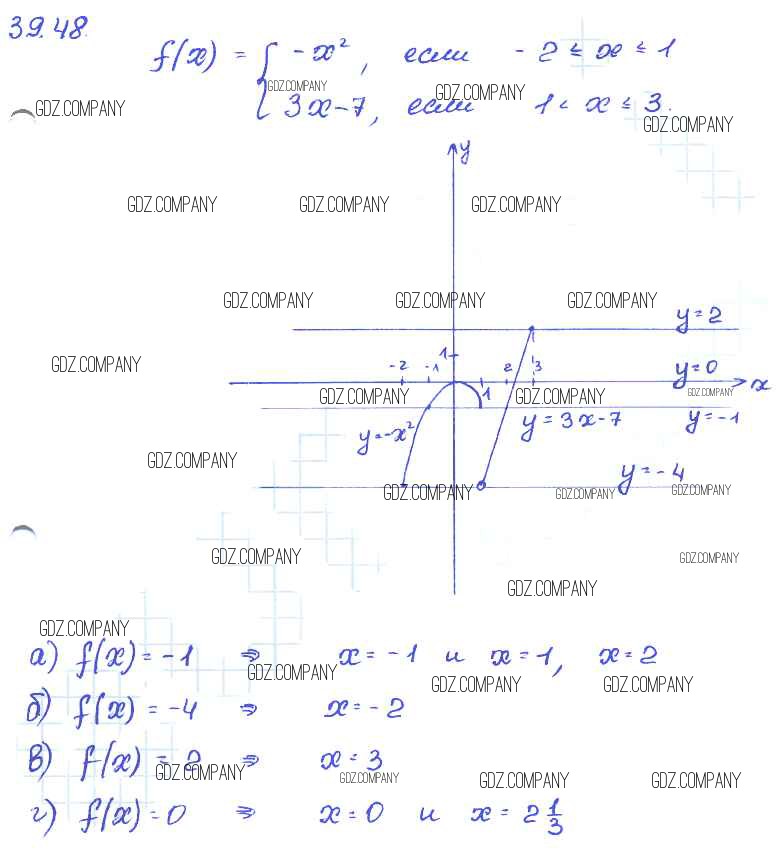 39.48.
f(x) = { -x², если -2 ≤ x ≤ 1
GDZ.COMPANY GDZ.COMPANY
3x-7, если 1 < x ≤ 3.
GDZ.COMPANY GDZ.COMPANY
y
GDZ.COMPANY GDZ.COMPANY GDZ.COMPANY
GDZ.COMPANY GDZ.COMPANY GDZ.COMPANY
y=2
1
GDZ.COMPANY -2 -1 2 3 y=0
x
GDZ.COMPANY 1 GDZ.COMPANY GDZ.COMPANY
y=-x² y=3x-7 y=-1
GDZ.COMPANY y=-4
GDZ.COMPANY GDZ.COMPANY GDZ.COMPANY
GDZ.COMPANY GDZ.COMPANY
GDZ.COMPANY
GDZ.COMPANY
а) f(x)=-1 ⇒ x=-1 и x=1, x=2
GDZ.COMPANY GDZ.COMPANY GDZ.COMPANY
б) f(x)=-4 ⇒ x=-2
в) f(x)=2 ⇒ x=3
GDZ.COMPANY GDZ.COMPANY GDZ.COMPANY GDZ.COMPANY
г) f(x)=0 ⇒ x=0 и x=2 1/3